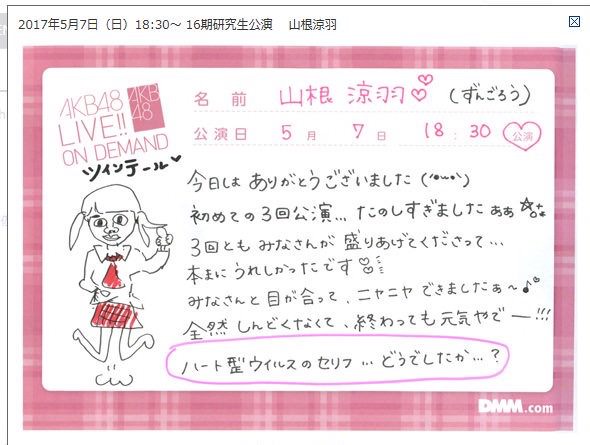 2017年5月7日（日）18:30～ 16期研究生公演　山根涼羽
AKB48
LIVE!!
ON DEMAND
AKB
48
名前 山根 涼羽♡♡ (ずんごろう)
公演日 5月 7日 18:30 公演
ツインテール♥
今日は ありがとうございました
初めての3回公演... たのしすぎましたぁぁ☆
3回とも みなさんが 盛りあげてくださって...
本まに うれしかったです♡
みなさんと 目が合って、ニヤニヤ できましたぁ〜♪
全然 しんどくなくて、終わっても 元気やでー!!!
ハート型ウイルスのセリフ... どうでしたか...?
DMM.com